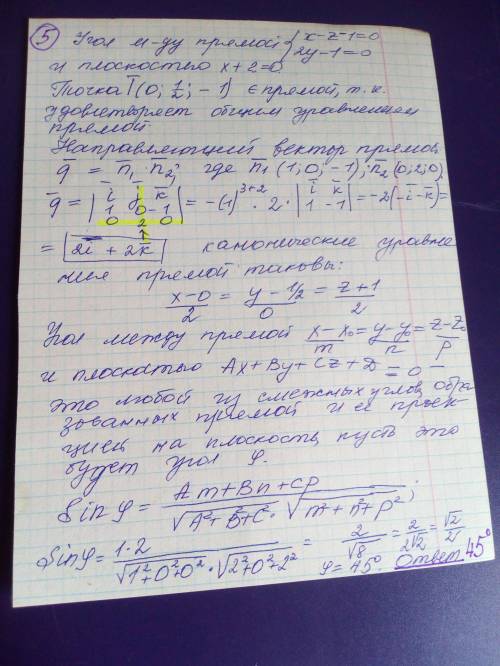 5 Угол м-ду прямой { x-z-1=0
2y-1=0
и плоскостью x+2=0.
Точка T(0; 1/2; -1) ∈ прямой, т.к.
удовлетворяет общим уравнениям
прямой.
Направляющий вектор прямой
q̄ = n̄₁ · n̄₂, где n₁(1; 0; -1); n̄₂(0; 2; 0)
q̄ = | ī j k̄ ; 1 0 -1 ; 0 2 0 | = -(1)³⁺² · 2 · | ī k̄ ; 1 -1 | = -2(-ī-k̄) =
= 2ī + 2k̄ канонические уравне
ния прямой таковы:
(x-0)/2 = (y-1/2)/0 = (z+1)/2
Угол между прямой (x-x₀)/m = (y-y₀)/n = (z-z₀)/p
и плоскостью Ax+By+Cz+D=0 –
это любой из смежных углов, обра
зованных прямой и её проек
цией на плоскость, пусть это
будет угол φ.
Sin φ = (Am+Bn+Cp)/(√(A²+B²+C²) · √(m²+n²+p²));
Sin φ = (1·2)/(√(1²+0²+0²) · √(2²+0²+2²)) = 2/√8 = 2/(2√2) = √2/2
φ = 45°. Ответ 45°